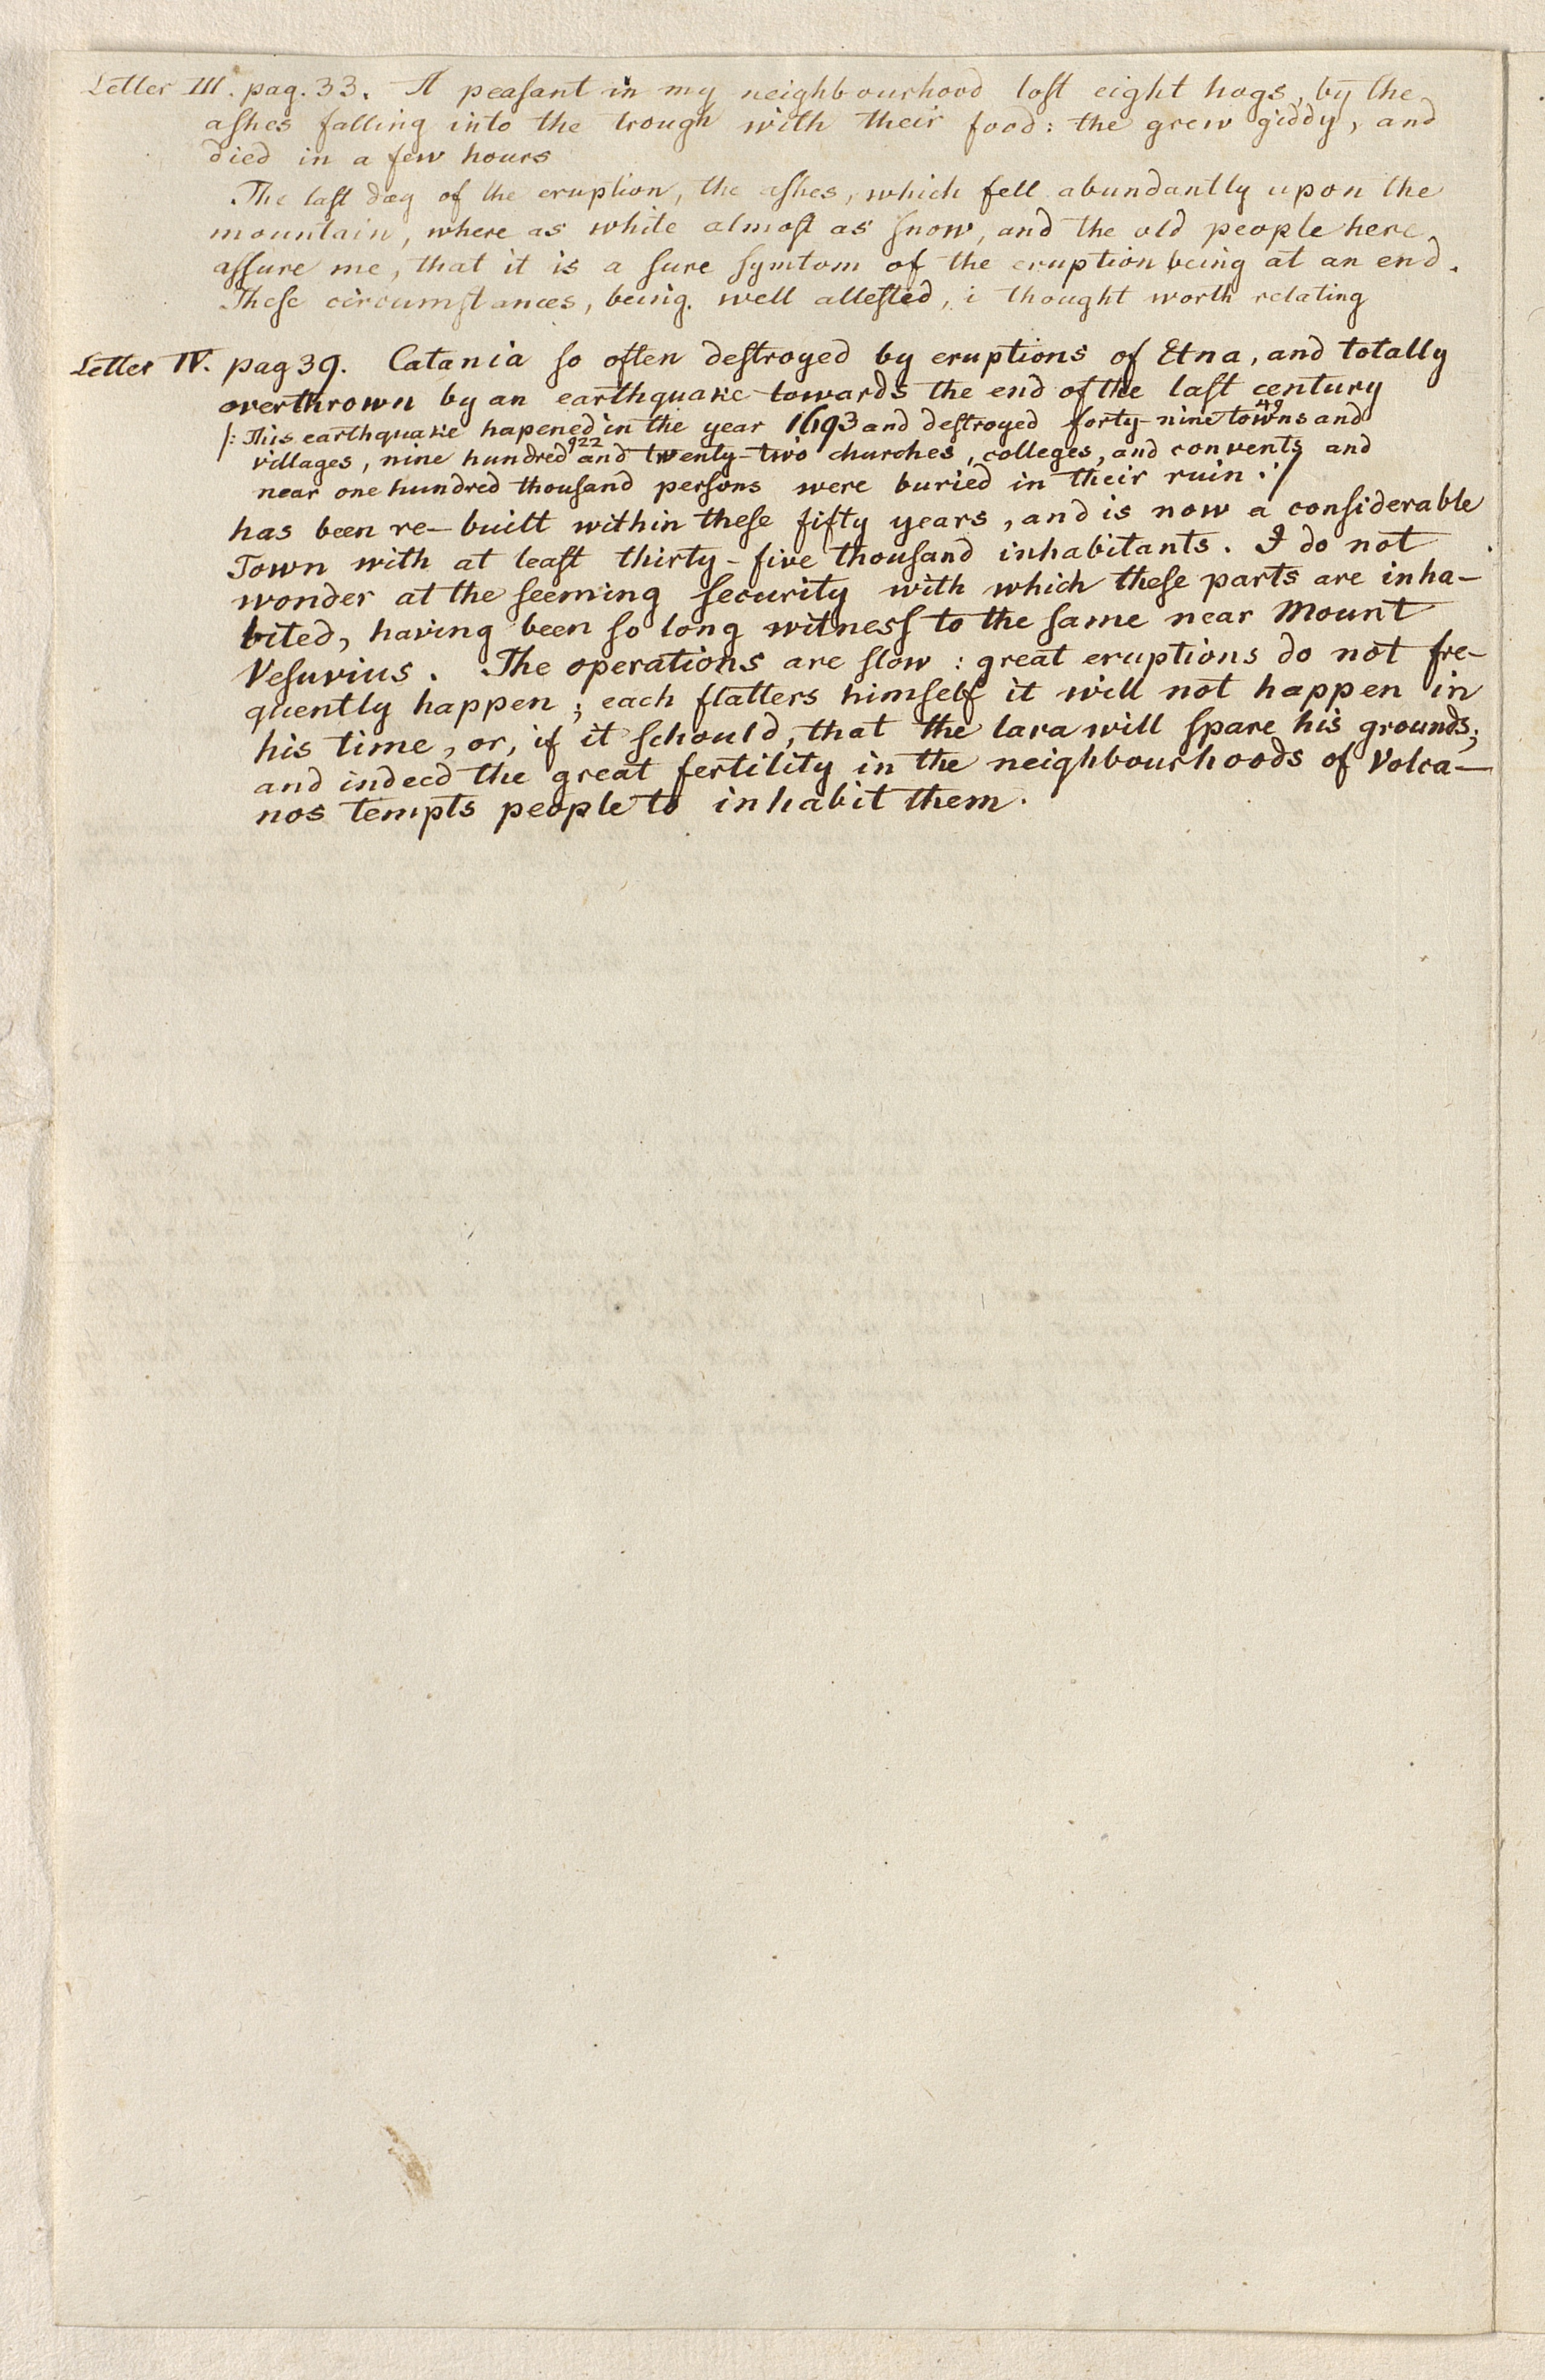 Letter III. pag. 33. A peaſant in my neighbourhood loſt eight hogs, by the
aſhes falling into the trough with their food: the grew giddy, and
died in a few hours
The laſt day of the eruption, the aſhes, which fell abundantly upon the
mountain, where as white almoſt as ſnow, and the old people here
aſſure me, that it is a ſure ſymtom of the eruption being at an end.
Theſe circumſtances, being well atteſted, i thought worth relating
Letter IV. pag 39. Catania ſo often deſtroyed by eruptions of Etna, and totally
overthrown by an earthquake towards the end of the laſt century
49
/: This earthquake hapened in the year 1693 and deſtroyed forty-nine towns and
922
villages, nine hundred and twenty-two churches, colleges, and convents and
near one hundred thouſand perſons were buried in their ruin :/
has been re-built within theſe fifty years, and is now a conſiderable
Town with at leaſt thirty-five thouſand inhabitants. I do not
wonder at the ſeeming ſecurity with which theſe parts are inha-
bited, having been ſo long witneſſ to the ſame near Mount
Veſuvius. The operations are ſlow: great eruptions do not fre-
quently happen; each flatters himſelf it will not happen in
his time, or, if it ſchould, that the lava will ſpare his grounds;
and indeed the great fertility in the neighbourhoods of Volca-
nos tempts people to inhabit them.